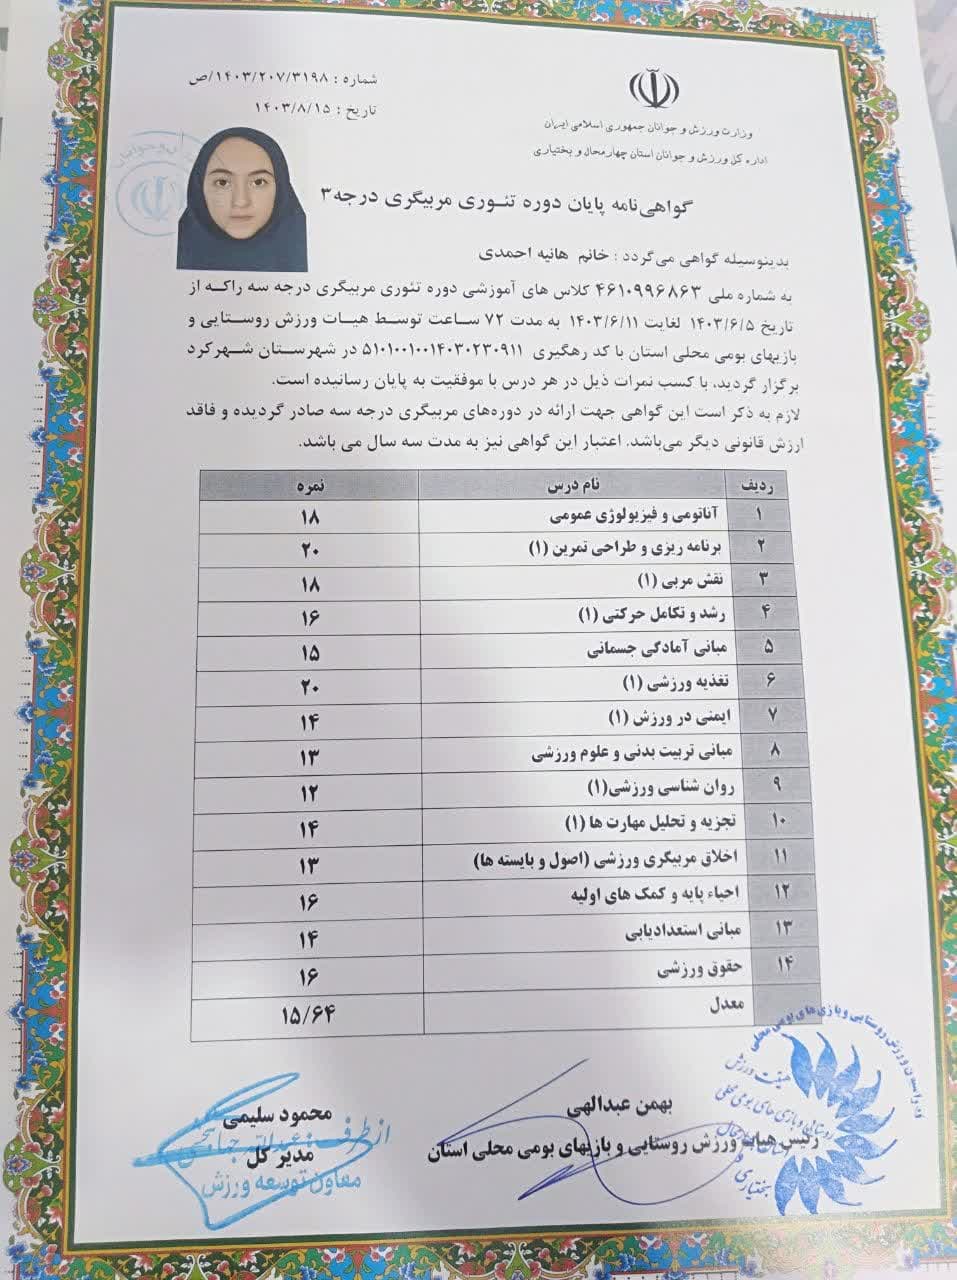 شماره : ۱۴۰۳/۲۰۷/۳۱۹۸/ص
تاریخ : ۱۴۰۳/۸/۱۵
وزارت ورزش و جوانان جمهوری اسلامی ایران
اداره کل ورزش و جوانان استان چهارمحال و بختیاری
گواهی‌نامه پایان دوره تئوری مربیگری درجه ۳
بدینوسیله گواهی می‌گردد : خانم هانیه احمدی
به شماره ملی ۴۶۱۰۹۹۶۸۶۳ کلاس های آموزشی دوره تئوری مربیگری درجه سه راکه از
تاریخ ۱۴۰۳/۶/۵ لغایت ۱۴۰۳/۶/۱۱ به مدت ۷۲ ساعت توسط هیات ورزش روستایی و
بازیهای بومی محلی استان با کد رهگیری ۵۱۰۱۰۰۱۰۰۱۴۰۳۰۲۳۰۹۱۱ در شهرستان شهرکرد
برگزار گردید، با کسب نمرات ذیل در هر درس با موفقیت به پایان رسانیده است.
لازم به ذکر است این گواهی جهت ارائه در دوره‌های مربیگری درجه سه صادر گردیده و فاقد
ارزش قانونی دیگر می‌باشد. اعتبار این گواهی نیز به مدت سه سال می باشد.
ردیف نام درس نمره
۱ آناتومی و فیزیولوژی عمومی ۱۸
۲ برنامه ریزی و طراحی تمرین (۱) ۲۰
۳ نقش مربی (۱) ۱۸
۴ رشد و تکامل حرکتی (۱) ۱۶
۵ مبانی آمادگی جسمانی ۱۵
۶ تغذیه ورزشی (۱) ۲۰
۷ ایمنی در ورزش (۱) ۱۴
۸ مبانی تربیت بدنی و علوم ورزشی ۱۳
۹ روان شناسی ورزشی(۱) ۱۲
۱۰ تجزیه و تحلیل مهارت ها (۱) ۱۴
۱۱ اخلاق مربیگری ورزشی (اصول و بایسته ها) ۱۳
۱۲ احیاء پایه و کمک های اولیه ۱۶
۱۳ مبانی استعدادیابی ۱۴
۱۴ حقوق ورزشی ۱۶
معدل ۱۵/۶۴
بهمن عبدالهی
رئیس هیات ورزش روستایی و بازیهای بومی محلی استان
محمود سلیمی
مدیر کل
از طرف
معاون توسعه ورزش